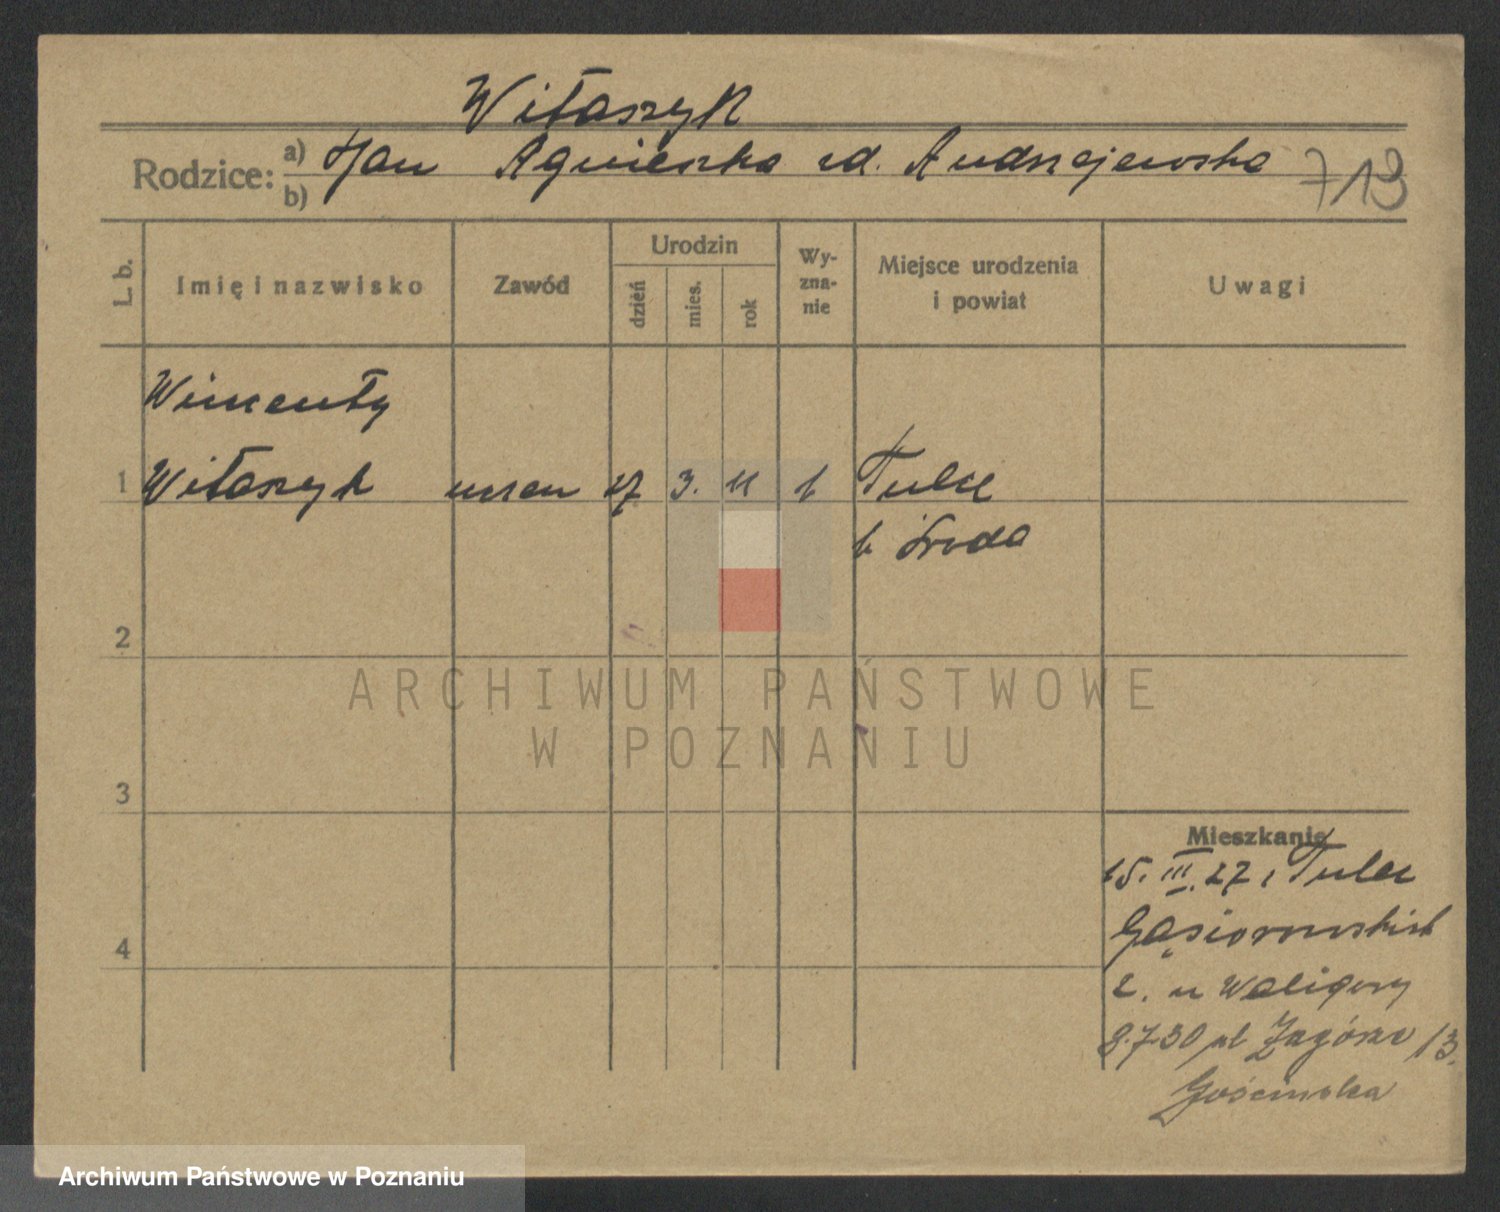 Witaszyk
Rodzice: a) Jan Agnieszka zd. Andrzejewska 719
b)
L. b. Imię i nazwisko Zawód Urodzin dzień mies. rok Wy-zna-nie Miejsce urodzenia i powiat Uwagi
Wincenty
1 Witaszyk uczeń 27 3. 11 k Tulce
p. Środa
2
3
4
Mieszkanie
15. III. 27 z Tulce
Gąsiorowskich
2. u Waligóry
8.7.30 pl Zagórze 13.
Gościńska
ARCHIWUM PAŃSTWOWE
W POZNANIU
Archiwum Państwowe w Poznaniu